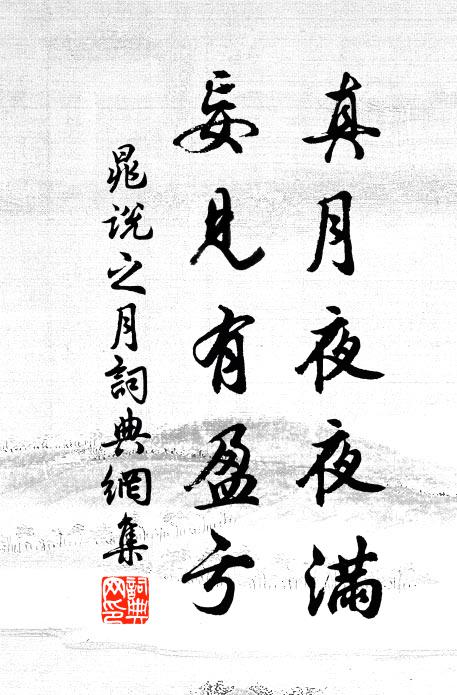 真月夜夜满
妄见有盈亏
晁说之月詞典網集
詞典网印